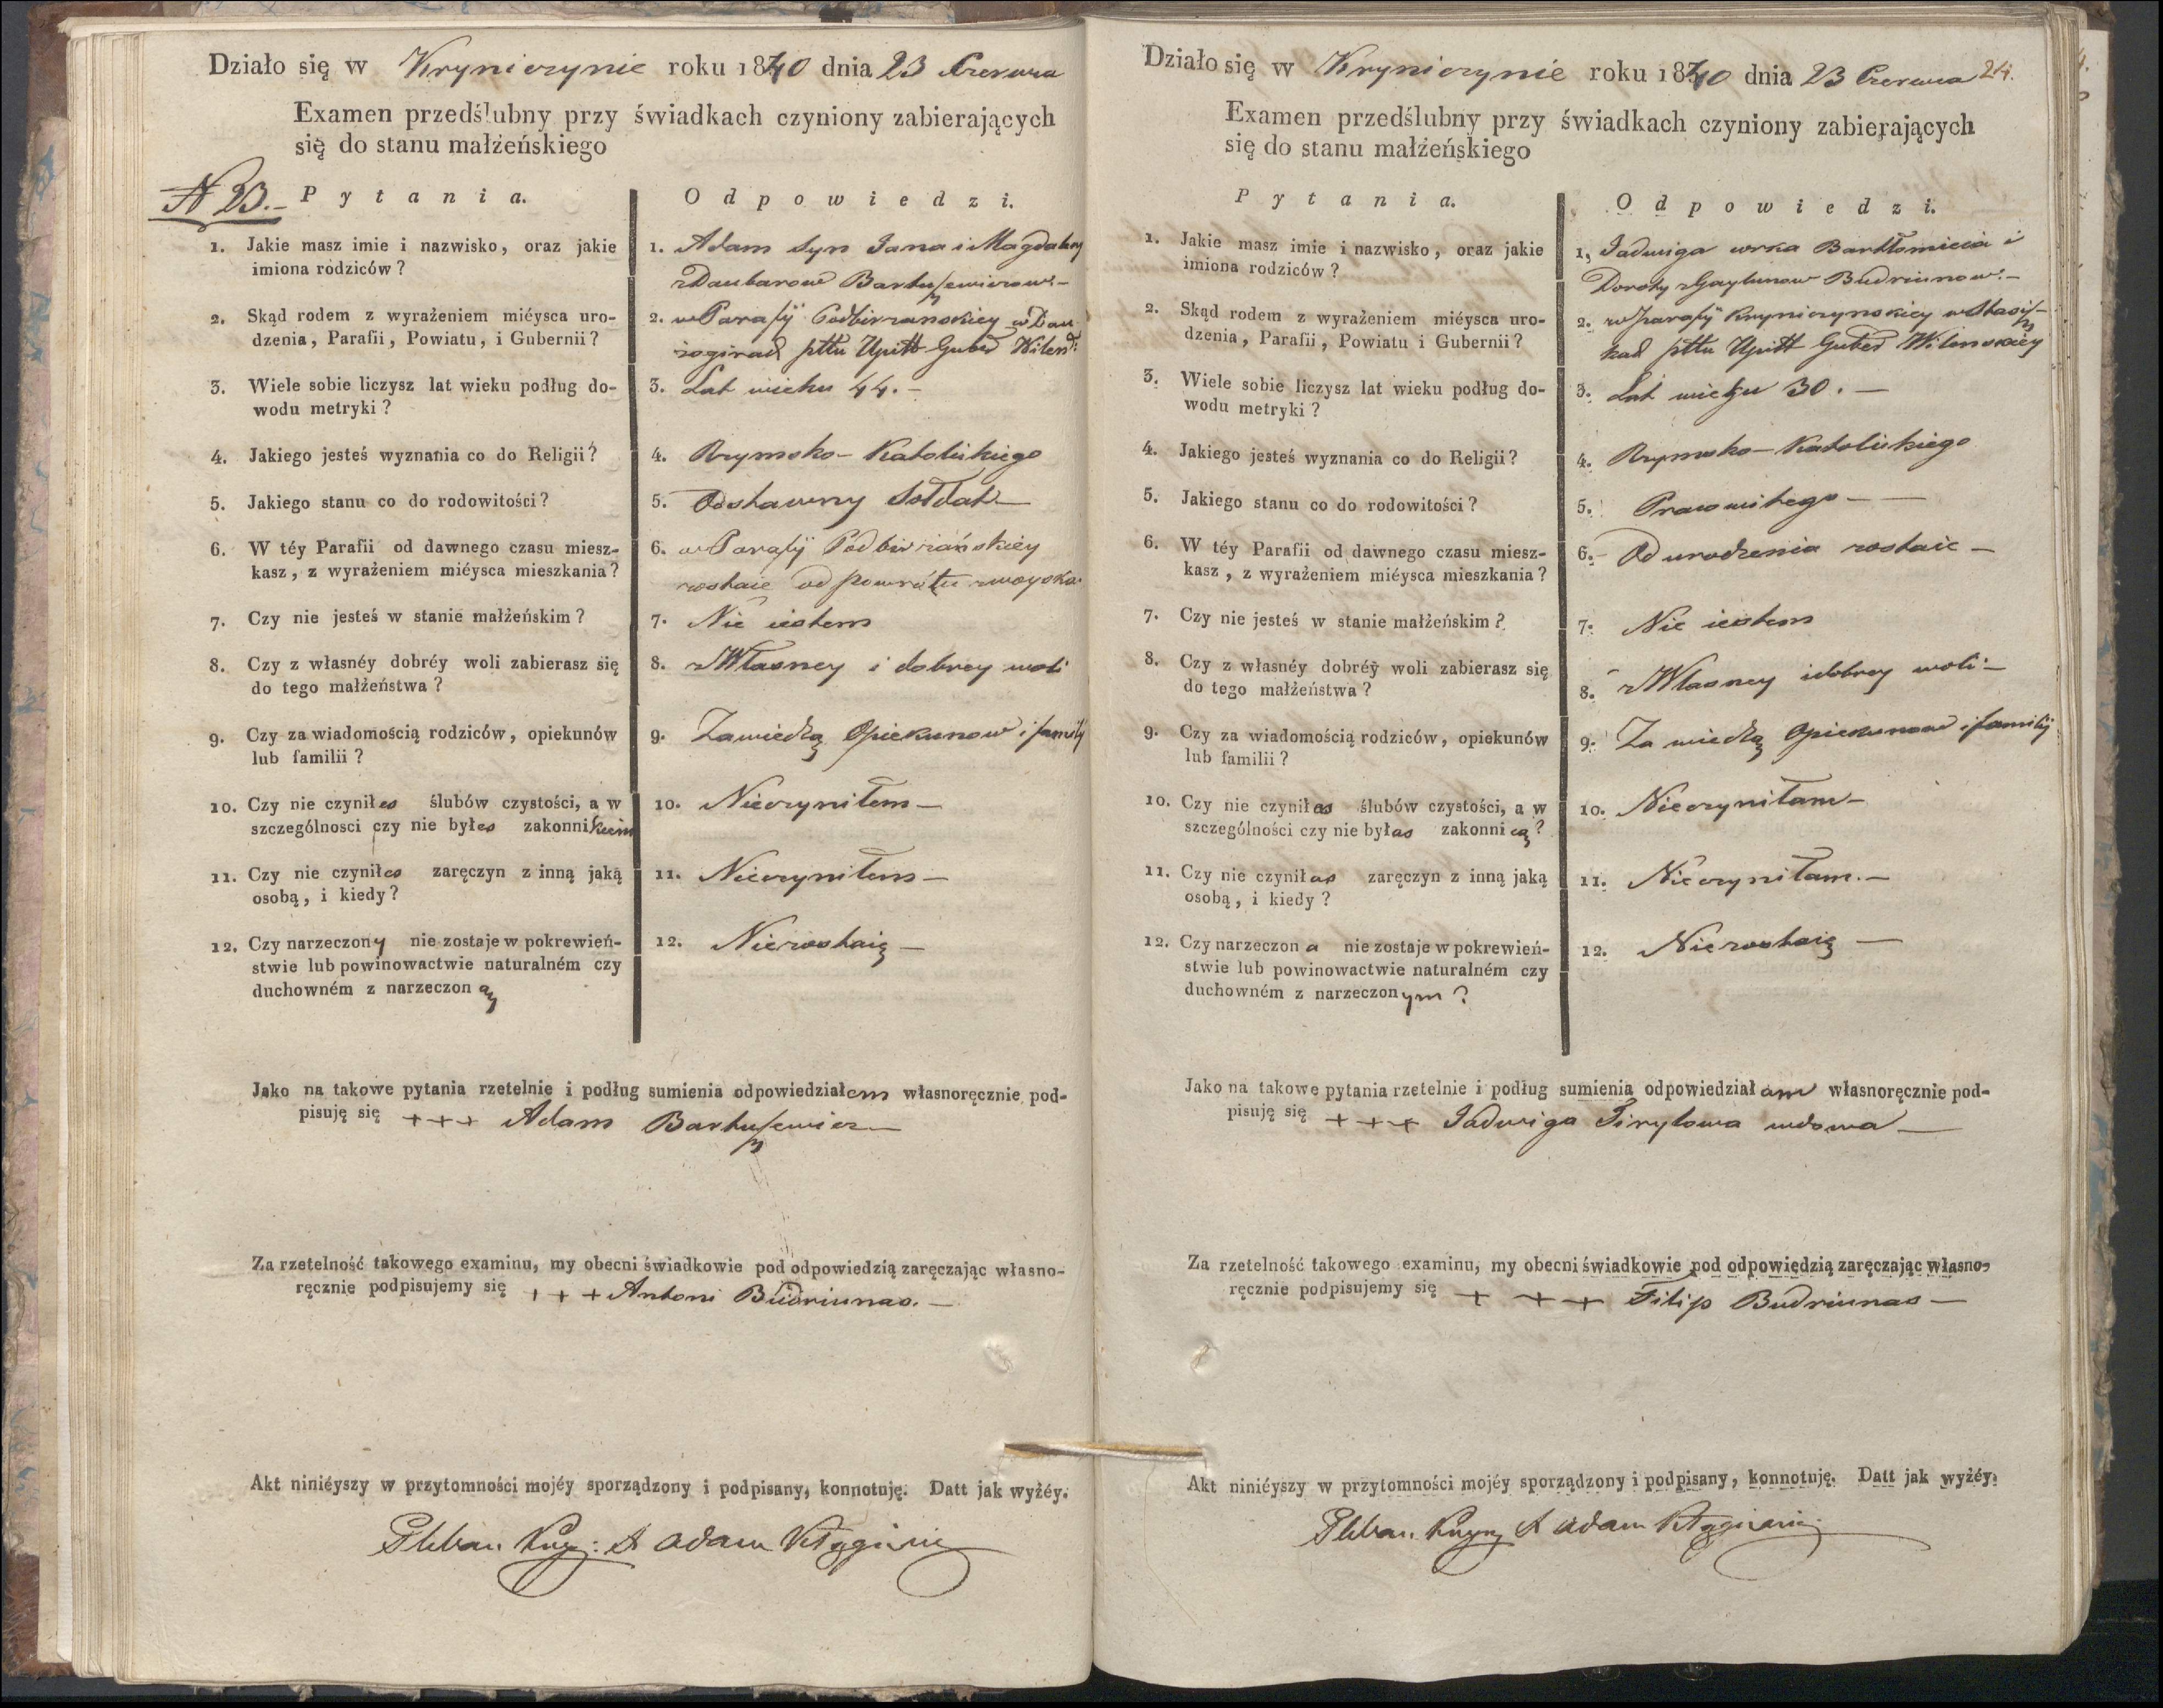 Działo się w Kryniczynie roku 1840 dnia 23 Czerwca
Examen przedślubny przy świadkach czyniony zabierających
się do stanu małżeńskiego
N 23.- Pytania. Odpowiedzi.
1. Jakie masz imie i nazwisko, oraz jakie
imiona rodziców?
1. Adam Syn Jana i Magdaleny
z Daubarow Bartuszewiczow.-
2. Skąd rodem z wyrażeniem miéysca uro-
dzenia, Parafii, Powiatu, i Gubernii?
2. w Parafij Podbirzanskiey w Dau
żogirach pttu Upitt Guber Wilens:
3. Wiele sobie liczysz lat wieku podług do-
wodu metryki?
3. Lat wieku 44.-
4. Jakiego jesteś wyznania co do Religii?
4. Rzymsko-Katolickiego
5. Jakiego stanu co do rodowitości?
5. Odstawny Sołdat-
6. W téy Parafii od dawnego czasu miesz-
kasz, z wyrażeniem miéysca mieszkania?
6. w Parafij Podbirżańskiéy
zostaie od powrótu z woyska
7. Czy nie jesteś w stanie małżeńskim?
7. Nie iestem
8. Czy z własnéy dobréy woli zabierasz się
do tego małżeństwa?
8. z Własney i dobrey woli
9. Czy za wiadomością rodziców, opiekunów
lub familii?
9. Zawiedzą Opiekunow i familij
10. Czy nie czyniłes ślubów czystości, a w
szczególnosci czy nie byłes zakonnikiem
10. Nieczyniłem-
11. Czy nie czyniłes zaręczyn z inną jaką
osobą, i kiedy?
11. Nieczyniłem-
12. Czy narzeczony nie zostaje w pokrewień-
stwie lub powinowactwie naturalném czy
duchowném z narzeczoną
12. Niezostaię-
Jako na takowe pytania rzetelnie i podług sumienia odpowiedziałem własnoręcznie pod-
pisuję się +++ Adam Bartuszewicz-
Za rzetelność takowego examinu, my obecni świadkowie pod odpowiedzią zaręczając własno-
ręcznie podpisujemy się +++ Antoni Budriunas.-
Akt niniéyszy w przytomności mojéy sporządzony i podpisany, konnotuję. Datt jak wyżéy.
Pleban Kry: X Adam
Działo się w Kryniczynie roku 1840 dnia 23 Czerwca 24.
Examen przedślubny przy świadkach czyniony zabierających
się do stanu małżeńskiego
Pytania. Odpowiedzi.
1. Jakie masz imie i nazwisko, oraz jakie
imiona rodziców?
1. Jadwiga corka Bartłomieia i
Doroty z Gaylunow Budriunow.-
2. Skąd rodem z wyrażeniem miéysca uro-
dzenia, Parafii, Powiatu i Gubernii?
2. w parafij Kryniczynskiey w
pttu Upitt Guber Wilenskiey
3. Wiele sobie liczysz lat wieku podług do-
wodu metryki?
3. Lat wieku 30.-
4. Jakiego jesteś wyznania co do Religii?
4. Rzymsko-Katolickiego
5. Jakiego stanu co do rodowitości?
5. Prawowitego--
6. W téy Parafii od dawnego czasu miesz-
kasz, z wyrażeniem miéysca mieszkania?
6.- Od urodzenia zostaie-
7. Czy nie jesteś w stanie małżeńskim?
7. Nie iestem
8. Czy z własnéy dobréy woli zabierasz się
do tego małżeństwa?
8. z Własney i dobrey woli-
9. Czy za wiadomością rodziców, opiekunów
lub familii?
9. Za wiedzą Opiekunow i familij
10. Czy nie czyniłas ślubów czystości, a w
szczególności czy nie byłas zakonnicą?
10. Nieczyniłam-
11. Czy nie czyniłas zaręczyn z inną jaką
osobą, i kiedy?
11. Nieczyniłam.-
12. Czy narzeczona nie zostaje w pokrewień-
stwie lub powinowactwie naturalném czy
duchowném z narzeczonym?
12. Niezostaię-
Jako na takowe pytania rzetelnie i podług sumienia odpowiedziałam własnoręcznie pod-
pisuję się +++ Jadwiga Firylowa wdowa-
Za rzetelność takowego examinu, my obecni świadkowie pod odpowiędzią zaręczając własno-
ręcznie podpisujemy się +++ Filip Budriunas-
Akt niniéyszy w przytomności mojéy sporządzony i podpisany, konnotuję. Datt jak wyżéy.
Pleban Kryn X Adam